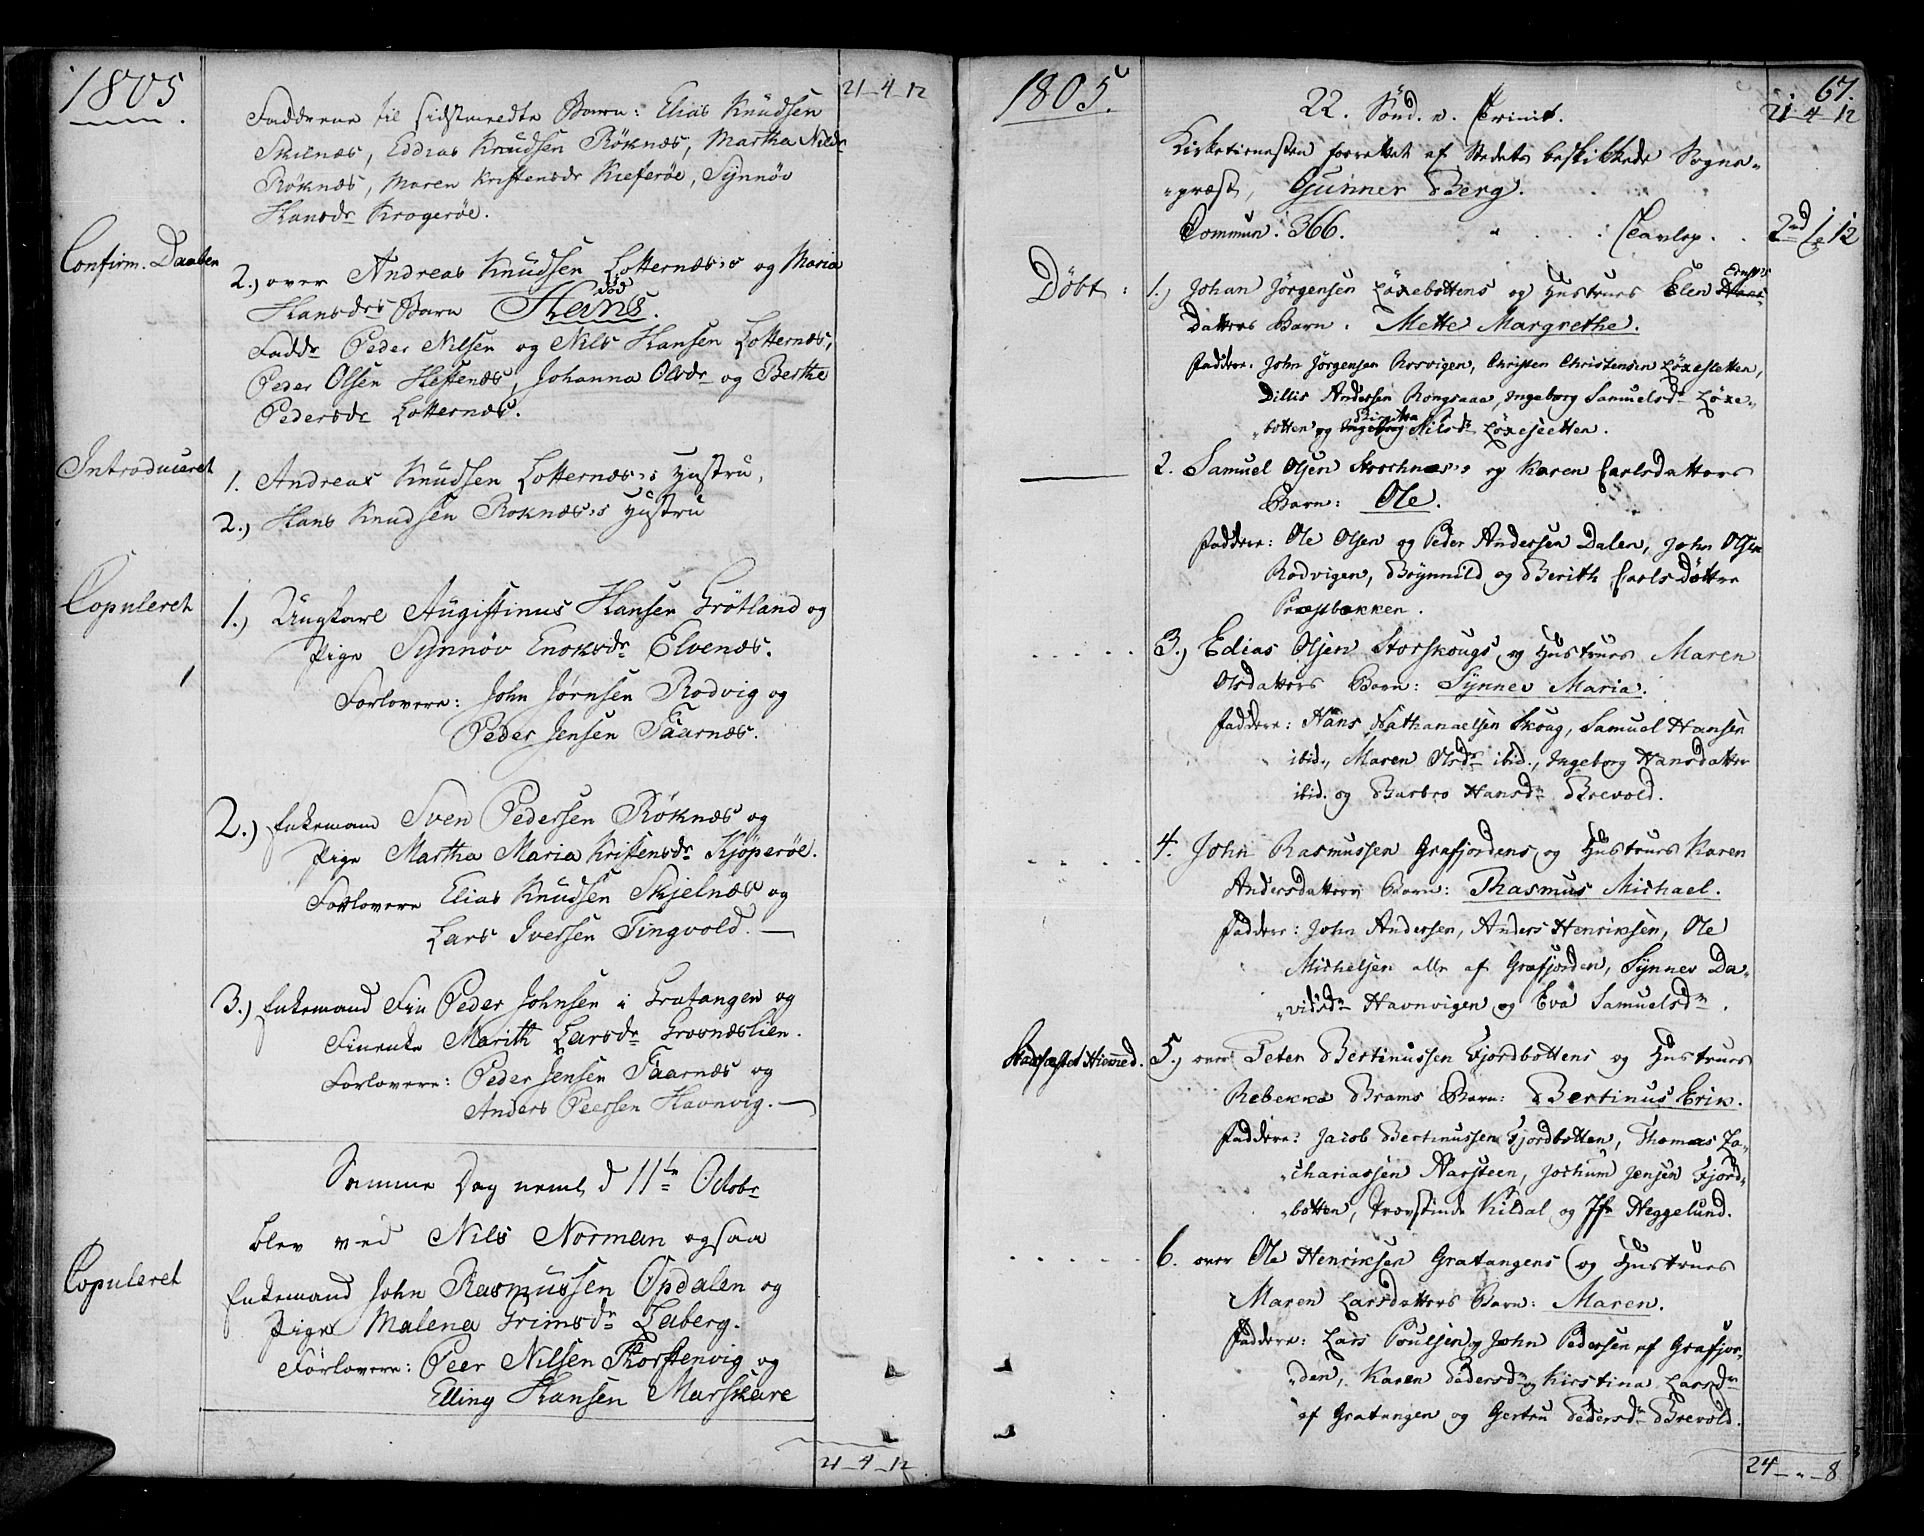 1805
21 - 4 - 12
Faddrene til sidstmeldte Barn: Elias Knudsen
Skilnæs, Eddias Knudsen Röknæs, Martha Nilsdr
Röknæs, Maren Kristensdr Kieferöe, Synnöv
Hansdr Krogeröe.
Confirm. Daaben
2.) over Andreas Knudsen Lotternæs's og Maria
död
Hansdrs Barn Hans.
Faddr Peder Nilsen og Nils Hansen Lotternæs,
Peder Olsen Heftenæs, Johanna Olsdr og Berthe
Pedersdr Lotternæs.
Introduceret
1. Andreas Knudsen Lotternæs's Hustru,
2.) Hans Knudsen Röknæs's Hustru
Copuleret
1.) Ungkarl Augistinus Hansen Grötland og
Pige Synnöv Enoksdr Elvenæs.
Forlovere: John Jörnsen Rodvig og
Peder Jensen Faarnæs.
2.) Enkemand Sven Pedersen Röknæs og
Pige Martha Maria Kristensdr Kjöperöe.
Forlovere Elias Knudsen Skjelnæs og
Lars Iversen Tingvold.
3.) Enkemand Fin Peder Johnsen i Gratangen og
Finenke Marith Larsdr Grosnæslien.
Forlovere: Peder Jensen Faarnæs og
Anders Peersen Havnvig.
Samme Dag neml. d 11te Octobr
Copuleret
blev ved Nils Norman ogsaa
Enkemand John Rasmussen Opdalen og
Pige Malena Grimsdr Laberg.
Forlovere: Peer Nilsen Storstenvig og
Elling Hansen Marskare
21 - 4 - 12
1805.
67.
22. Sönd. n. Trinit.
21 - 4 - 12
Kirketienesten forrettet af Stedets beskikkede Sogne-
-præst, Gunner Berg.
Commun. 366. Tavlep. . 2rd 1 12
Döbt:
Ernst's
1.) Johan Jörgensen Löxebottens og Hustrues Elen Hans-
Datters Barn. Mette Margrethe.
Faddere. John Jörgensen Rosvigen, Christen Christensen Löxesletten,
Dillis Andersen Rongsaae, Ingeborg Samuelsdr Löxe-
Birgitha
-botten og Ingeborg Nilsdr Löxesletten.
2. Samuel Olsen Storchnæs's og Karen Carlsdatters
Barn: Ole.
Faddere: Ole Olsen og Peder Andersen Dalen, John Olsen
Rodvigen, Brynnild og Berith Carls Döttre
Præstbækken.
3.) Edias Olsen Storskougs og Hustrues Maren
Olsdatters Barn: Synnev Maria.
Faddere: Hans Nathanaelsen Skoug, Samuel Hansen
ibid., Maren Olsdr ibid., Ingeborg Hansdatter
ibid. og Barbro Hansdr Brevold.
4. John Rasmussen Grafjordens og Hustrues Karen
Andersdatters Barn: Rhasmus Michael.
Faddere: John Andersen, Anders Henriksen, Ole
Michelsen alle af Grafjorden, Synnev Da-
-vidsdr Havnvigen og Eva Samuelsdr.
Stadfæstet Hiemmed.
5.) over Peter Bertinussen Fjordbottens og Hustrues
Rebekka Brams Barn: Bertinus Erik.
Faddere: Jacob Bertinussen Fjordbotten, Thomas Za-
-chariassen Aarsteen, Jochum Jensen Fjord-
-botten, Provstinde Kildal og Jfr Heggelund.
6. over Ole Henriksen Gratangens og Hustrues
Maren Larsdatters Barn: Maren.
Faddere: Lars Poulsen og John Pedersen af Grafjor-
-den, Karen Pedersdr og Kirstina Larsdr
af Gratangen og Gertru Pedersdr Brevold.
24 - " - 8